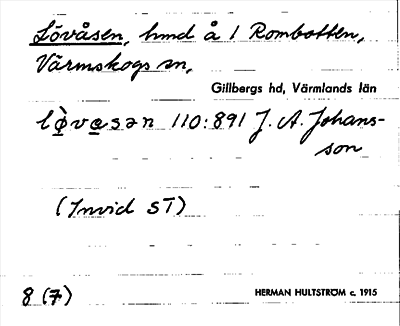 Lövåsen, hmd å 1 Rombotten,
Värmskogs sn,
Gillbergs hd, Värmlands län
lø̀vɑsən 110:891 J. A. Johans-
son
(Invid ST)
8 (7)
HERMAN HULTSTRÖM c. 1915